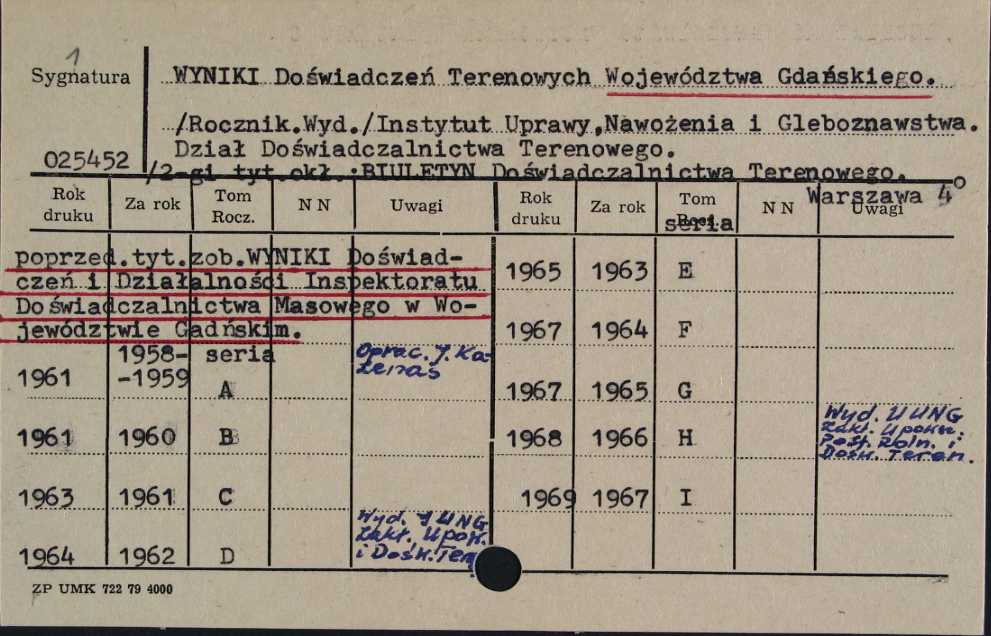 1
Sygnatura
WYNIKI Doświadczeń Terenowych Województwa Gdańskiego.
/Rocznik.Wyd./Instytut Uprawy,Nawożenia i Gleboznawstwa.
025452
Dział Doświadczalnictwa Terenowego.
/2-gi tyt.okł.:BIULETYN Doświadczalnictwa Terenowego.
Warszawa 4°
Rok druku Za rok Tom Rocz. N N Uwagi Rok druku Za rok Tom Rocz. N N Uwagi
seria
poprzed.tyt.zob.WYNIKI Doświad-
czeń i Działalności Inspektoratu
Doświadczalnictwa Masowego w Wo-
jewództwie Gadńskim.
1958- seria Oprac. J. Ka-
1961 -1959 A
1961 1960 B
1963 1961 C
Wyd. IUNG
Zakł. Upow.
i Dośw. Ter.
1964 1962 D
1965 1963 E
1967 1964 F
1967 1965 G
Wyd. IUNG
Zakł. Upow.
Post. Roln. i
Dośw. Teren.
1968 1966 H
1969 1967 I
ZP UMK 722 79 4000